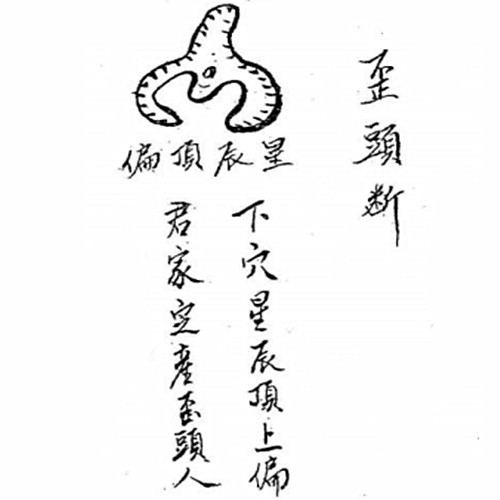 歪頭断
星辰頂偏
下穴星辰頂上偏
君家定產歪頭人